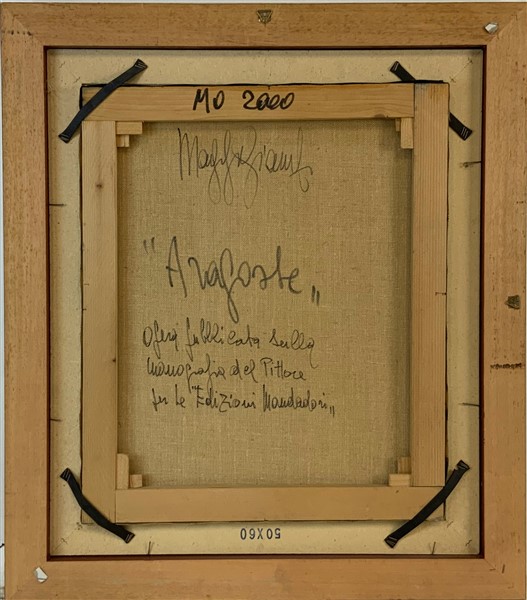 MO 2000
"Aragoste„
opera pubblicata sulla
monografia del Pittore
per le "Edizioni Mondadori„
50X60